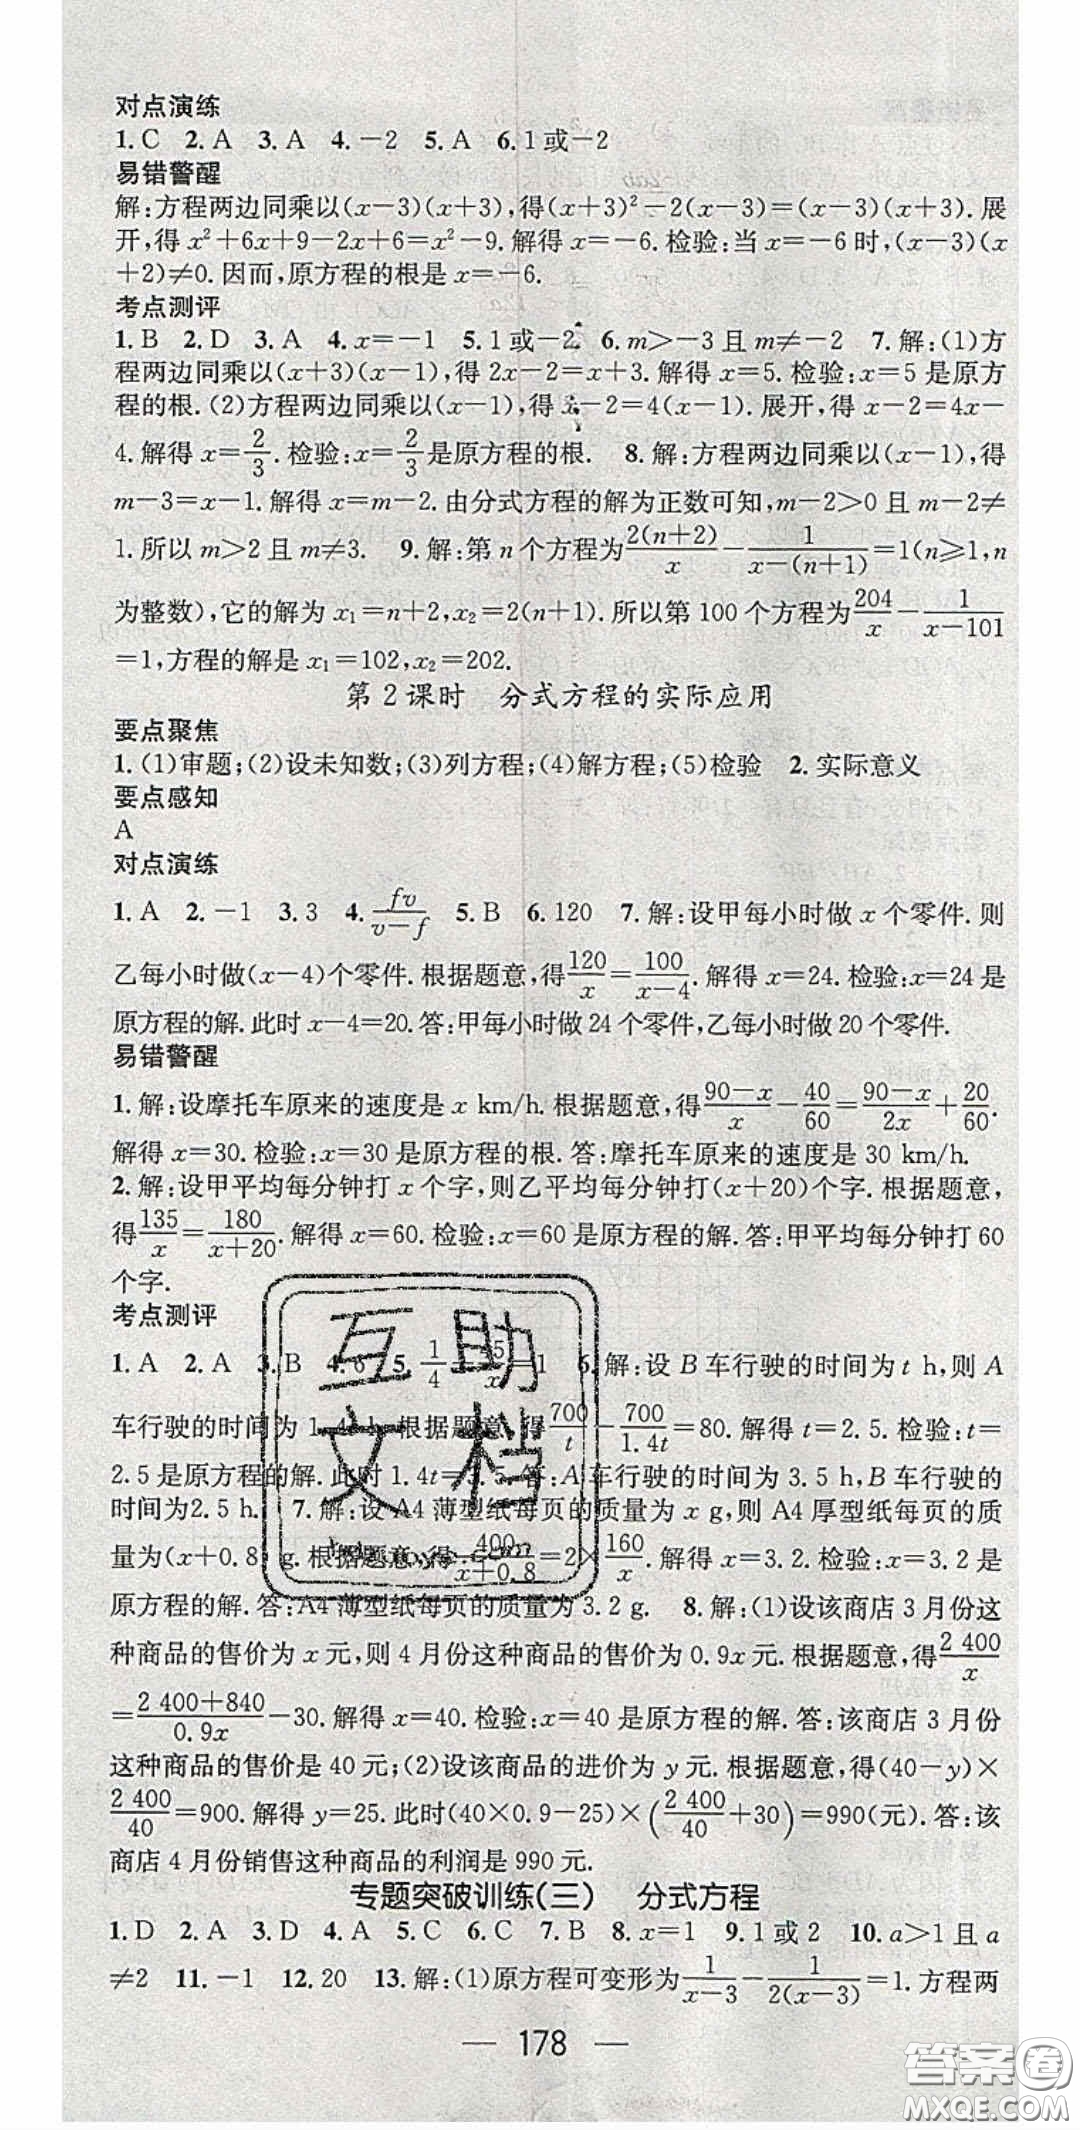 对点演练
1.C 2.A 3.A 4.－2 5.A 6.1或－2
易错警醒
解:方程两边同乘以(x－3)(x＋3),得(x＋3)²－2(x－3)＝(x－3)(x＋3).展
开,得 x²＋6x＋9－2x＋6＝x²－9.解得 x＝－6.检验:当 x＝－6 时,(x－3)(x
＋2)≠0.因而,原方程的根是 x＝－6.
考点测评
1.B 2.D 3.A 4.x＝－1 5.1或－2 6.m＞－3 且 m≠－2 7.解:(1)方
程两边同乘以(x＋3)(x－1),得 2x－2＝x＋3.解得 x＝5.检验:x＝5 是原方
程的根.(2)方程两边同乘以(x－1),得 x－2＝4(x－1).展开,得 x－2＝4x－
4.解得 x＝2/3.检验:x＝2/3是原方程的根. 8.解:方程两边同乘以(x－1),得
m－3＝x－1.解得 x＝m－2.由分式方程的解为正数可知,m－2＞0 且 m－2≠
1.所以 m＞2 且 m≠3. 9.解:第 n 个方程为2(n＋2)/x－1/(x－(n＋1))＝1(n≥1,n
为整数),它的解为 x₁＝n＋2,x₂＝2(n＋1).所以第 100 个方程为204/x－1/(x－101)
＝1,方程的解是 x₁＝102,x₂＝202.
第 2 课时 分式方程的实际应用
要点聚焦
1.(1)审题;(2)设未知数;(3)列方程;(4)解方程;(5)检验 2.实际意义
要点感知
A
对点演练
1.A 2.－1 3.3 4.fv/(v－f) 5.B 6.120 7.解:设甲每小时做 x 个零件.则
乙每小时做(x－4)个零件.根据题意,得120/x＝100/(x－4).解得 x＝24.检验:x＝24 是
原方程的解.此时 x－4＝20.答:甲每小时做 24 个零件,乙每小时做 20 个零件.
易错警醒
1.解:设摩托车原来的速度是 x km/h.根据题意,得(90－x)/x－40/60＝(90－x)/2x＋20/60.
解得 x＝30.检验:x＝30 是原方程的根.答:摩托车原来的速度是 30 km/h.
2.解:设甲平均每分钟打 x 个字,则乙平均每分钟打(x＋20)个字.根据题意,
得135/x＝180/(x＋20).解得 x＝60.检验:x＝60 是原方程的解.答:甲平均每分钟打 60
个字.
考点测评
1.A 2.A 3.B 4.6 5.1/4 45/x＝1 6.解:设 B 车行驶的时间为 t h,则 A
车行驶的时间为 1.4t h.根据题意,得700/t－700/1.4t＝80.解得 t＝2.5.检验:t＝
2.5 是原方程的解.此时 1.4t＝3.5.答:A 车行驶的时间为 3.5 h,B 车行驶的
时间为2.5 h. 7.解:设 A4 薄型纸每页的质量为 x g,则 A4 厚型纸每页的质
量为(x＋0.8) g.根据题意,得400/(x＋0.8)＝2×160/x.解得 x＝3.2.检验:x＝3.2 是
原方程的解.答:A4 薄型纸每页的质量为 3.2 g. 8.解:(1)设该商店 3 月份这
种商品的售价为 x 元,则 4 月份这种商品的售价为 0.9x 元.根据题意,得2 400/x
＝(2 400＋840)/0.9x－30.解得 x＝40.检验:x＝40 是原方程的解.答:该商店 3 月份
这种商品的售价是 40 元;(2)设该商品的进价为 y 元.根据题意,得(40－y)×
2 400/40＝900.解得 y＝25.此时(40×0.9－25)×(2 400/40＋30)＝990(元).答:该
商店 4 月份销售这种商品的利润是 990 元.
专题突破训练(三) 分式方程
1.D 2.A 3.D 4.A 5.C 6.C 7.B 8.x＝1 9.1 或 2 10.a＞1 且 a
≠2 11.－1 12.20 13.解:(1)原方程可变形为1/(x－3)－1/(2(x－3))＝1.方程两
— 178 —
互助
文档
答案圈
MXQE.COM